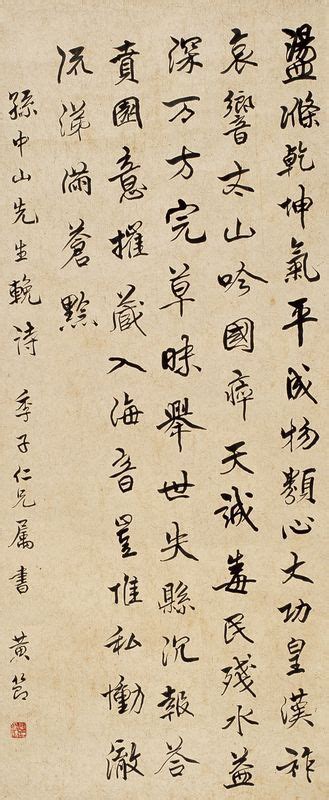 盪滌乾坤氣平成物類心大功皇漢祚
哀響山吟國瘁天誠毒民殘水益
深万方完草昧舉世失縣沉報答
賁園意摧藏入海音豈惟私慟澈
流涕滿蒼黔
孫中山先生輓詩 季子仁兄属書 黃節